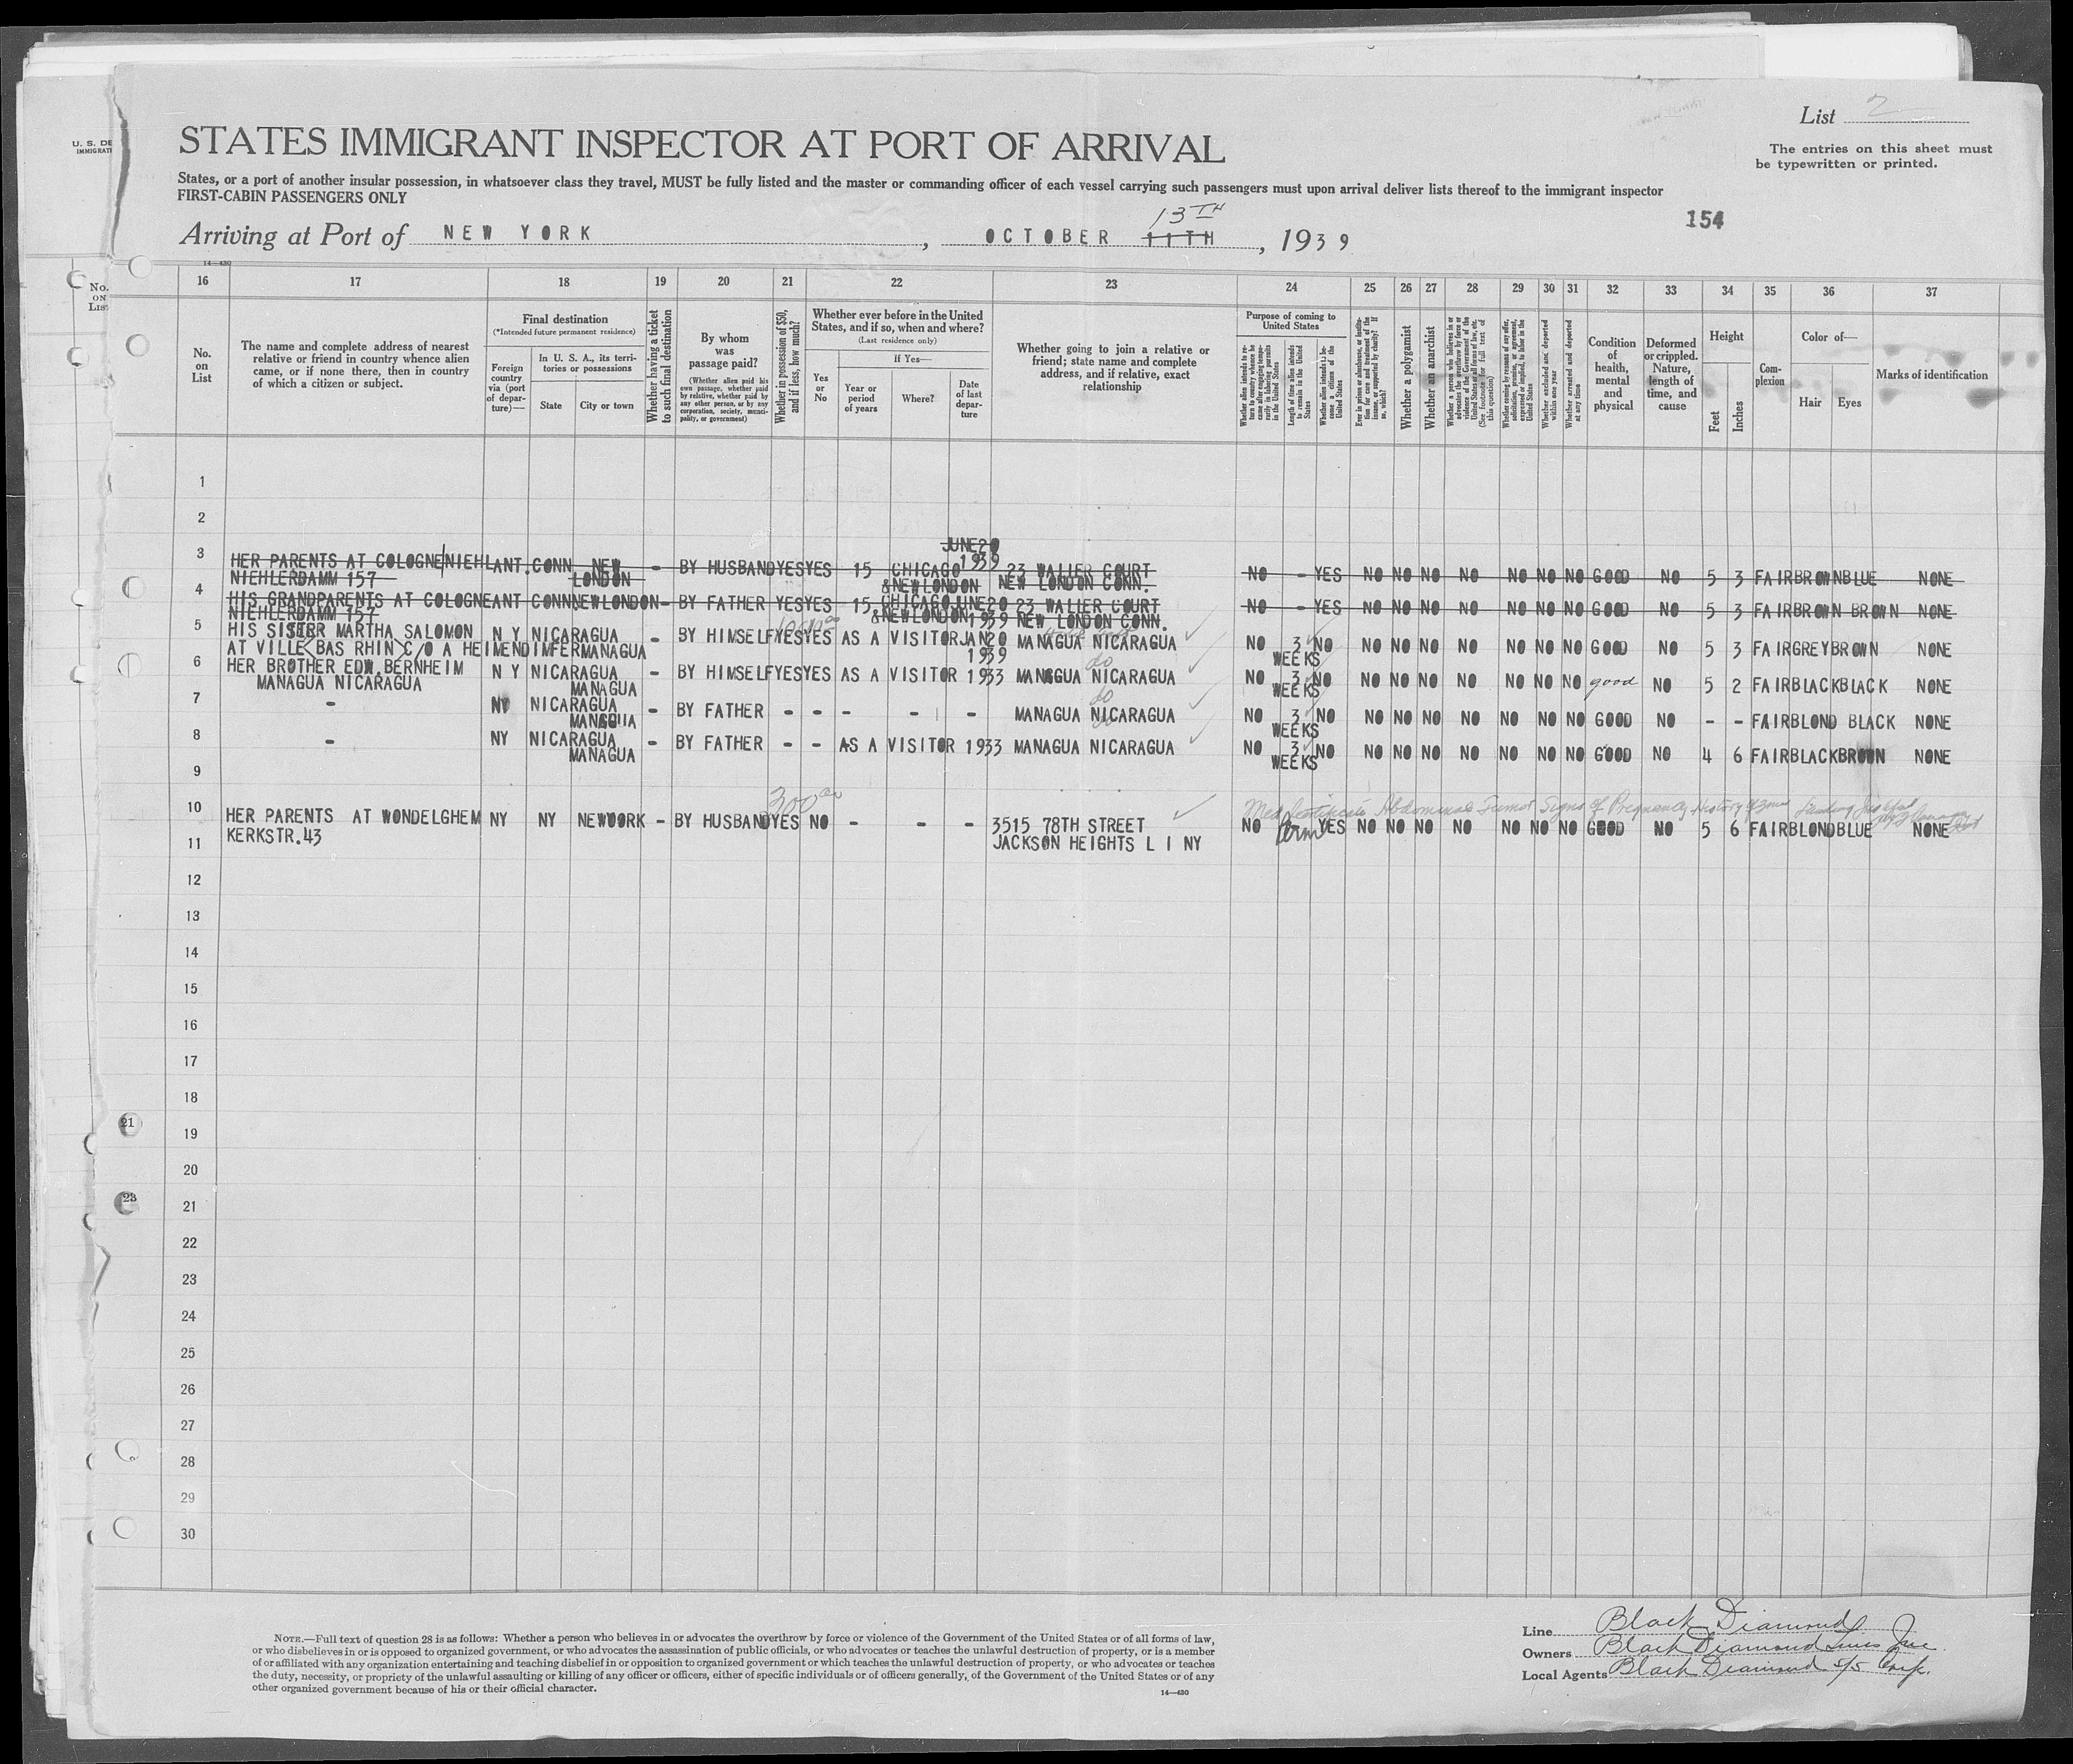 U. S. DE
IMMIGRATI
List 2
STATES IMMIGRANT INSPECTOR AT PORT OF ARRIVAL
The entries on this sheet must
be typewritten or printed.
States, or a port of another insular possession, in whatsoever class they travel, MUST be fully listed and the master or commanding officer of each vessel carrying such passengers must upon arrival deliver lists thereof to the immigrant inspector
FIRST-CABIN PASSENGERS ONLY
154
13TH
Arriving at Port of NEW YORK, OCTOBER 11TH, 1939
14—430
No. ON LIST
16 17 18 19 20 21 22 23 24 25 26 27 28 29 30 31 32 33 34 35 36 37
No. on List
The name and complete address of nearest relative or friend in country whence alien came, or if none there, then in country of which a citizen or subject.
Final destination
(*Intended future permanent residence)
Foreign country via (port of departure)—
In U. S. A., its territories or possessions
State
City or town
Whether having a ticket to such final destination
By whom was passage paid?
(Whether alien paid his own passage, whether paid by relative, whether paid by any other person, or by any corporation, society, municipality, or government)
Whether in possession of $50, and if less, how much?
Whether ever before in the United States, and if so, when and where?
(Last residence only)
Yes or No
If Yes—
Year or period of years
Where?
Date of last departure
Whether going to join a relative or friend; state name and complete address, and if relative, exact relationship
Purpose of coming to United States
Whether alien intends to return to country whence he came after engaging temporarily in laboring pursuits in the United States
Length of time alien intends to remain in the United States
Whether alien intends to become a citizen of the United States
Ever in prison or almshouse, or institution for care and treatment of the insane, or supported by charity? If so, which?
Whether a polygamist
Whether an anarchist
Whether a person who believes in or advocates the overthrow by force or violence of the Government of the United States or all forms of law, etc. (See footnote for full text of this question)
Whether coming by reason of any offer, solicitation, promise, or agreement, expressed or implied, to labor in the United States
Whether excluded and deported within one year
Whether arrested and deported at any time
Condition of health, mental and physical
Deformed or crippled. Nature, length of time, and cause
Height
Feet
Inches
Complexion
Color of—
Hair
Eyes
Marks of identification
1
2
JUNE20
1939
3 HER PARENTS AT COLOGNE NIEHL ANT. CONN NEW LONDON - BY HUSBAND YES YES 15 CHICAGO & NEW LONDON 23 WALLER COURT NEW LONDON CONN. NO - YES NO NO NO NO NO NO NO GOOD NO 5 3 FAIR BROWN BLUE NONE
NIEHLERDAMM 157
4 HIS GRANDPARENTS AT COLOGNE ANT CONN NEW LONDON - BY FATHER YES YES 15 CHICAGO & NEW LONDON JUNE20 1939 23 WALLER COURT NEW LONDON CONN. NO - YES NO NO NO NO NO NO NO GOOD NO 5 3 FAIR BROWN BROWN NONE
NIEHLERDAMM 157
5 HIS SISTER MARTHA SALOMON N Y NICARAGUA - BY HIMSELF YES YES AS A VISITOR JAN20 1939 MANAGUA NICARAGUA NO 3 WEEKS NO NO NO NO NO NO NO NO GOOD NO 5 3 FAIR GREY BROWN NONE
AT VILLE BAS RHIN C/O A HEIMENDIMFER MANAGUA
6 HER BROTHER EDW. BERNHEIM N Y NICARAGUA - BY HIMSELF YES YES AS A VISITOR 1933 MANAGUA NICARAGUA do NO 3 WEEKS NO NO NO NO NO NO NO NO good NO 5 2 FAIR BLACK BLACK NONE
MANAGUA NICARAGUA MANAGUA
7 - NY NICARAGUA - BY FATHER - - - - - MANAGUA NICARAGUA do NO 3 WEEKS NO NO NO NO NO NO NO NO GOOD NO - - FAIR BLOND BLACK NONE
MANAGUA
8 - NY NICARAGUA - BY FATHER - - AS A VISITOR 1933 MANAGUA NICARAGUA do NO 3 WEEKS NO NO NO NO NO NO NO NO GOOD NO 4 6 FAIR BLACK BROWN NONE
MANAGUA
9
300 00
Med Certificate Abdominal Tumor Signs of Pregnancy History of 3 mos
10 HER PARENTS AT WONDELGHEM NY NY NEWYORK - BY HUSBAND YES NO - - - 3515 78TH STREET NO Perm YES NO NO NO NO NO NO NO GOOD NO 5 6 FAIR BLOND BLUE NONE
KERKSTR.43 JACKSON HEIGHTS L I NY
11
12
13
14
15
16
17
18
21
19
20
23
21
22
23
24
25
26
27
28
29
30
NOTE.—Full text of question 28 is as follows: Whether a person who believes in or advocates the overthrow by force or violence of the Government of the United States or of all forms of law,
or who disbelieves in or is opposed to organized government, or who advocates the assassination of public officials, or who advocates or teaches the unlawful destruction of property, or is a member
of or affiliated with any organization entertaining and teaching disbelief in or opposition to organized government or which teaches the unlawful destruction of property, or who advocates or teaches
the duty, necessity, or propriety of the unlawful assaulting or killing of any officer or officers, either of specific individuals or of officers generally, of the Government of the United States or of any
other organized government because of his or their official character.
14—430
Line Black Diamond
Owners Black Diamond Lines Inc.
Local Agents Black Diamond S/S Corp.